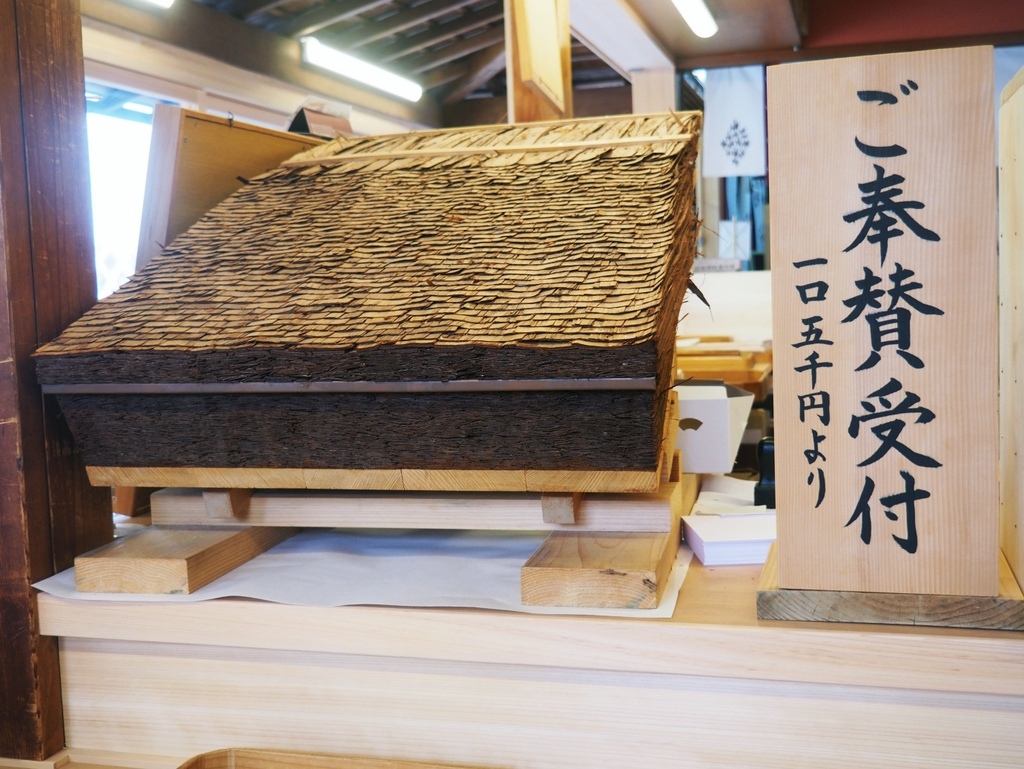 ご奉賛受付
一口五千円より